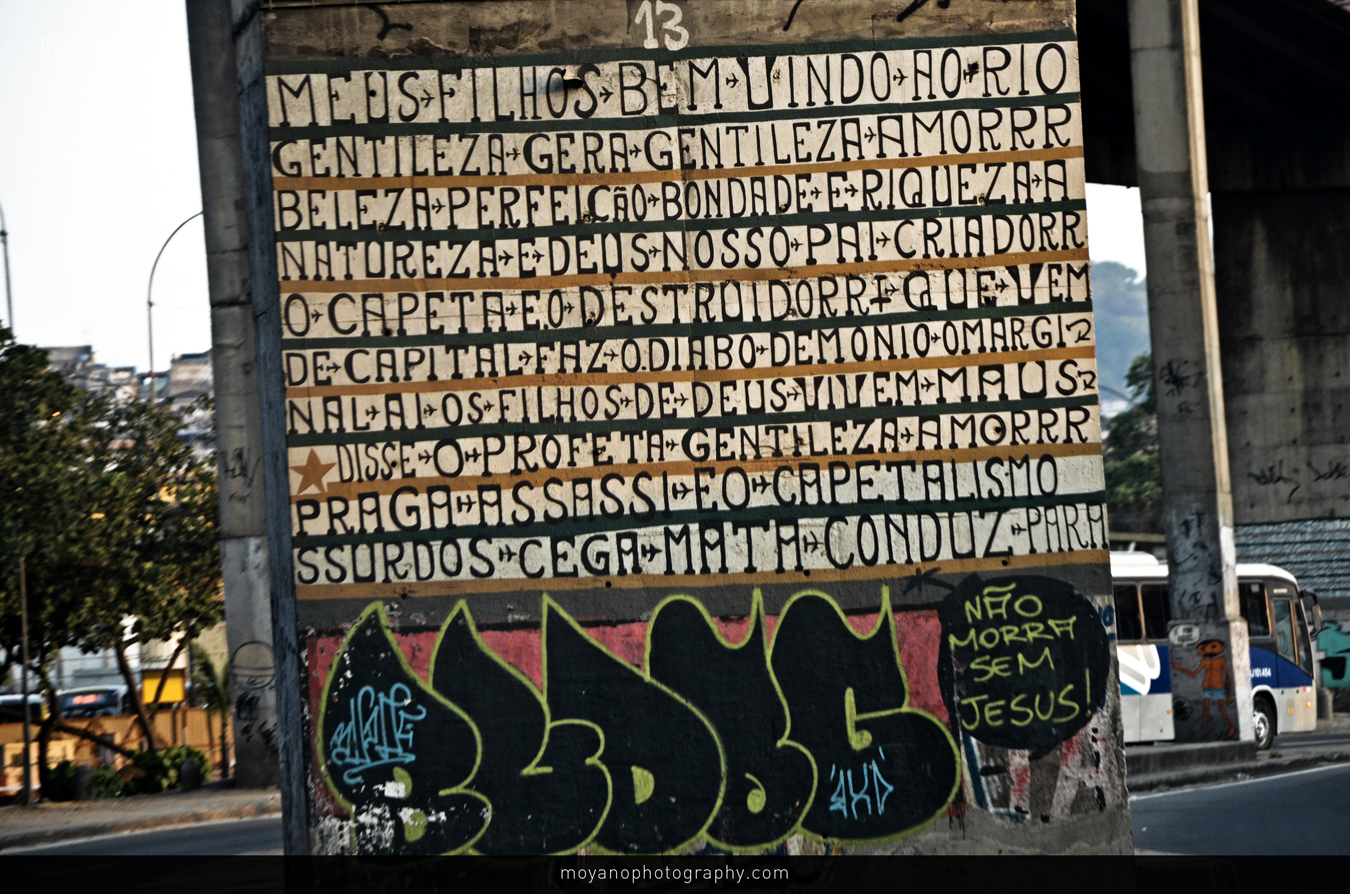 13
MEUS FILHOS BEM VINDO AO RIO
GENTILEZA GERA GENTILEZA AMORRR
BELEZA PERFEIÇÃO BONDADE E RIQUEZA A
NATUREZA E DEUS NOSSO PAI CRIADORR
O CAPETA E.O DESTRUIDORR QUE VEM
DE CAPITAL FAZ O.DIABO DEMONIO OMARGI
NAL AI OS FILHOS DE DEUS VIVEM MAUS
DISSE O PROFETA GENTILEZA AMORRR
PRAGA ASSASSI EO CAPETALISMO
SSURDOS CEGA MATA CONDUZ PARA
NÃO
MORRA
SEM
JESUS!
moyanophotography.com